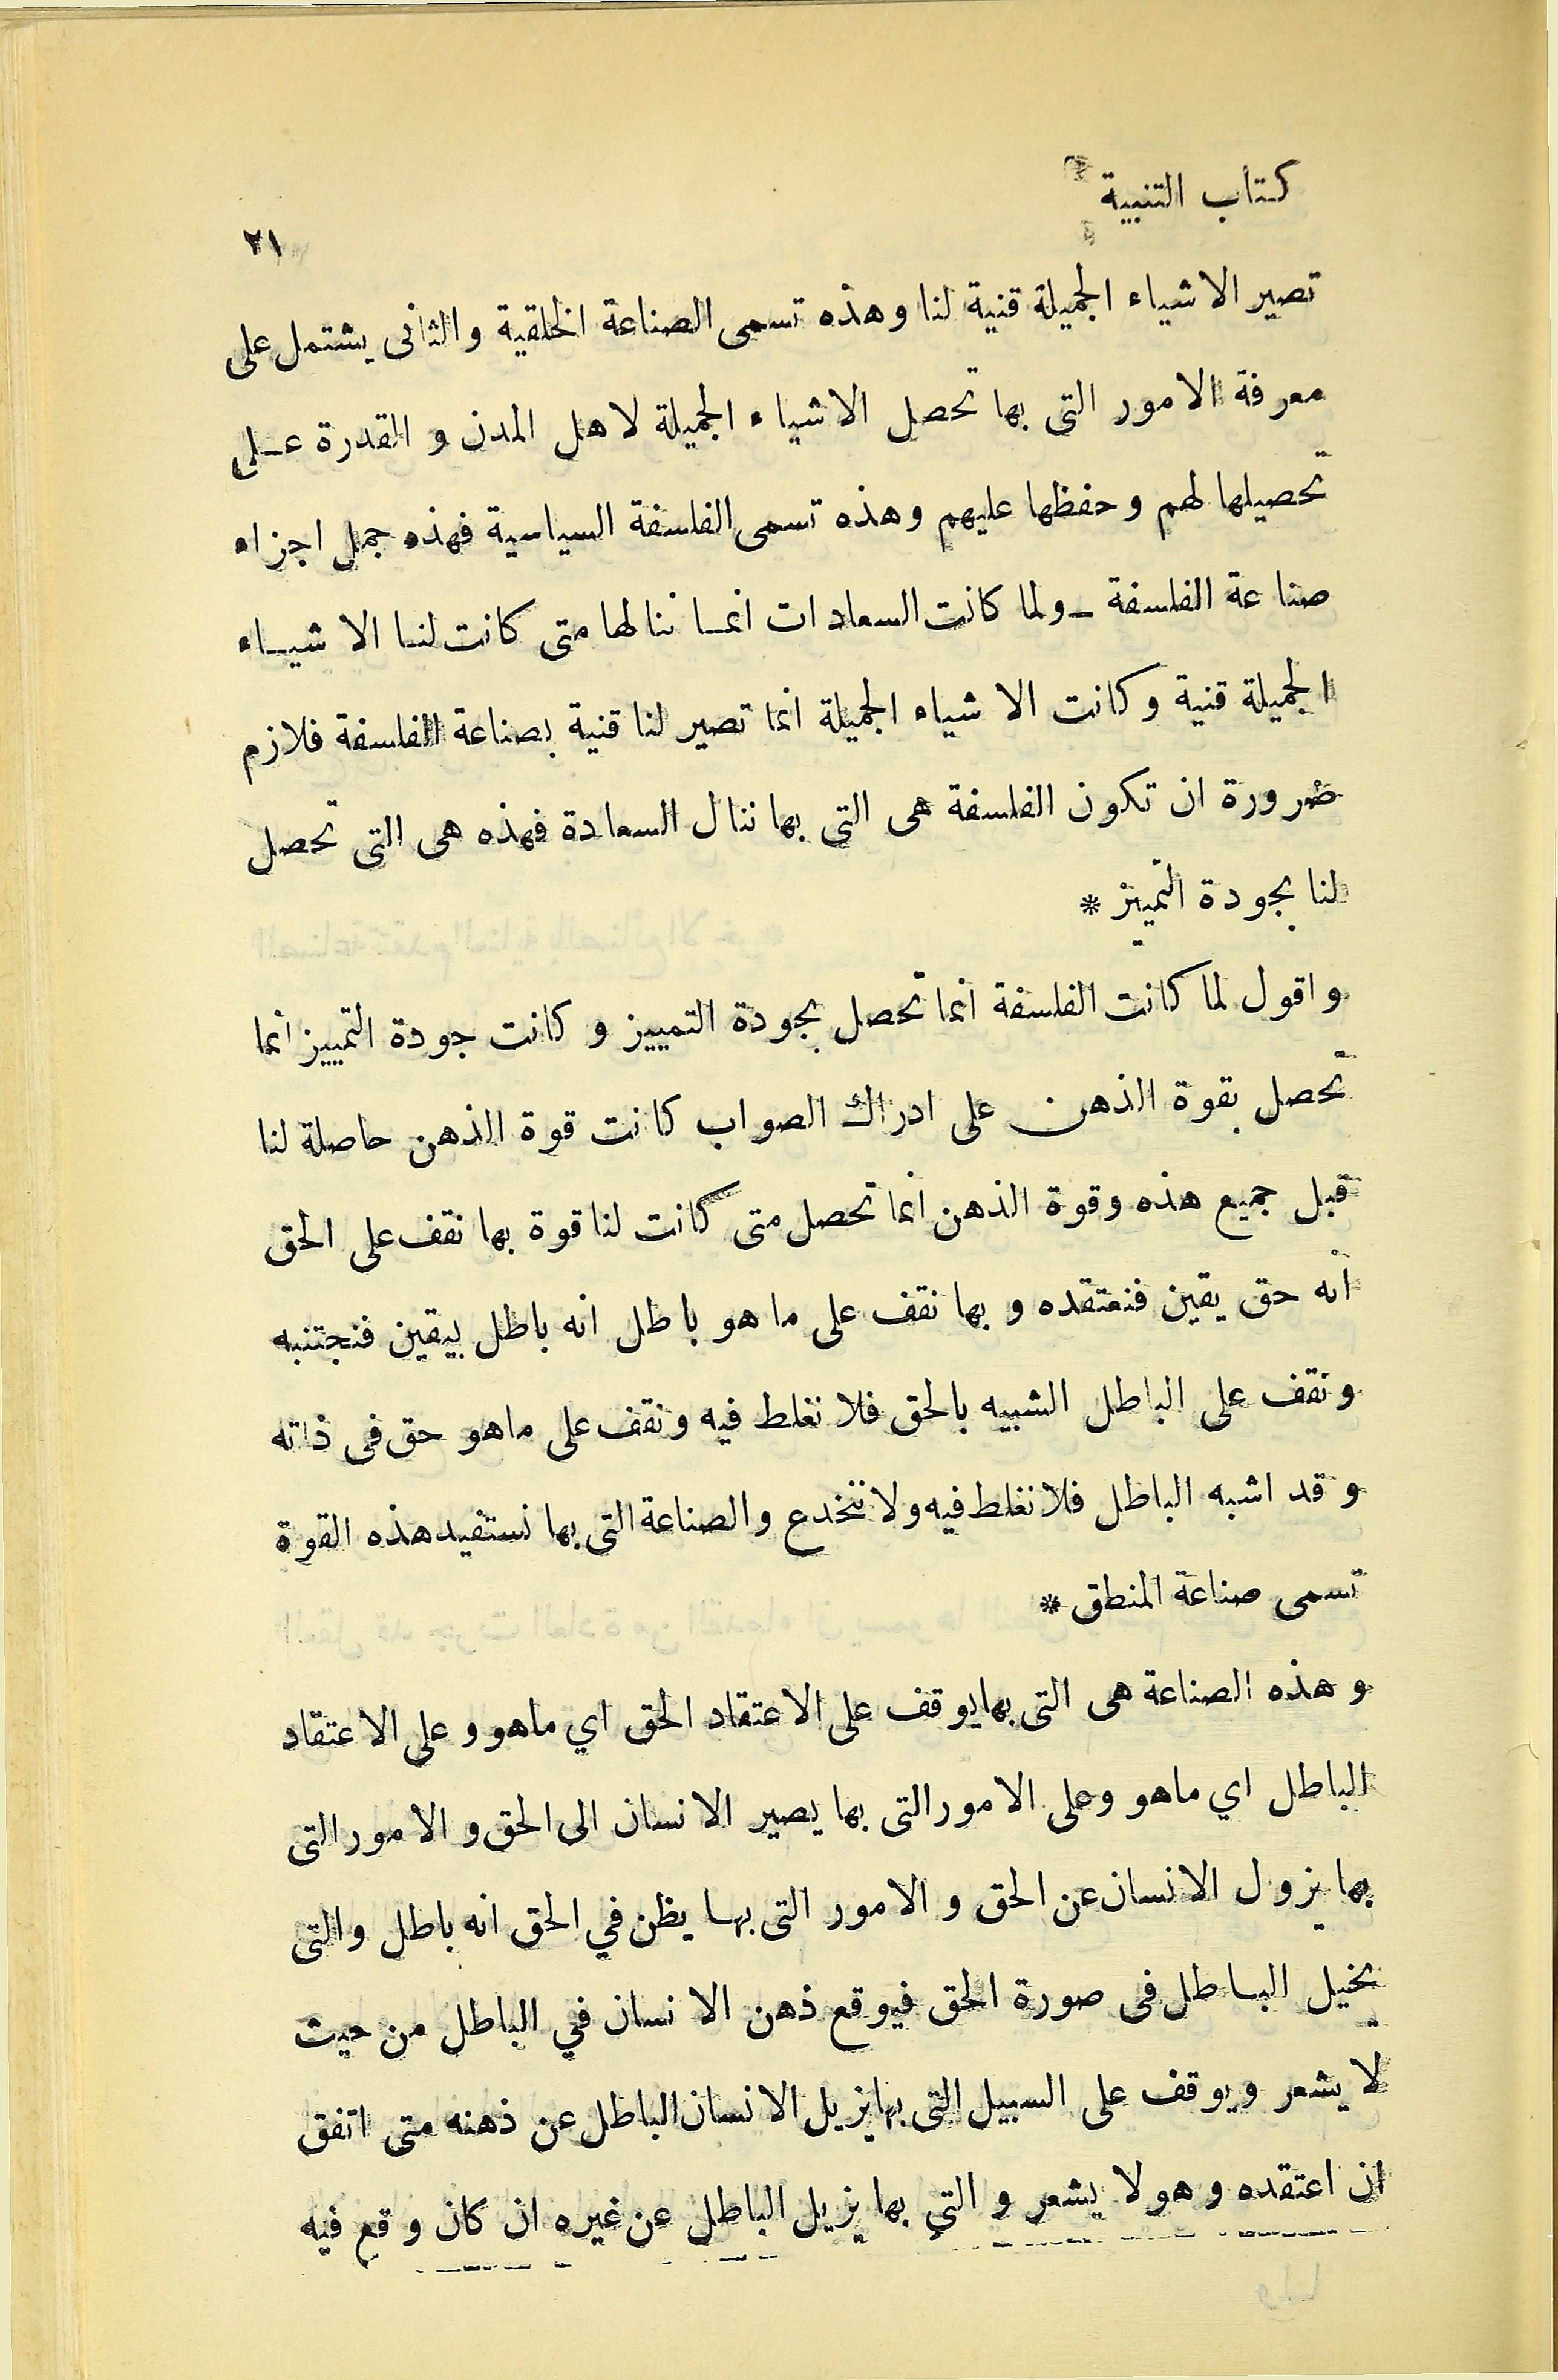 كتاب التنبية
٢١
تصير الاشياء الجميلة قنية لنا وهذه تسمى الصناعة الخلقية والثانى يشتمل على
معرفة الامور التى بها تحصل الاشياء الجميلة لاهل المدن و القدرة عـلى
تحصيلها لهم وحفظها عليهم وهذه تسمى الفلسفة السياسية فهذه جمل اجزاء
صناعة الفلسفة ـ ولما كانت السعادات انمـا ننالها متى كانت لنـا الاشيـاء
الجميلة قنية وكانت الاشياء الجميلة انما تصير لنا قنية بصناعة الفلسفة فلازم
ضرورة ان تكون الفلسفة هى التى بها ننال السعادة فهذه هى التى تحصل
لنا بجودة التمييز *
و اقول لما كانت الفلسفة انما تحصل بجودة التمييز و كانت جودة التمييز انما
تحصل بقوة الذهن على ادراك الصواب كانت قوة الذهن حاصلة لنا
قبل جميع هذه وقوة الذهن انما تحصل متى كانت لنا قوة بها نقف على الحق
انه حق يقين فنعتقده و بها نقف على ما هو باطل انه باطل بيقين فنجتنبه
ونقف على الباطل الشبيه بالحق فلا نغلط فيه ونقف على ماهو حق فى ذاته
وقد اشبه الباطل فلا نغلط فيه ولا ننخدع والصناعة التى بها نستفيد هذه القوة
تسمى صناعة المنطق *
و هذه الصناعة هى التى بها يوقف على الاعتقاد الحق اي ماهو و على الاعتقاد
الباطل اي ماهو وعلى الامور التى بها يصير الانسان الى الحق و الامور التى
بها يزول الانسان عن الحق و الامور التى بهـا يظن في الحق انه باطل والتى
يخيل البـاطل فى صورة الحق فيوقع ذهن الانسان في الباطل من حيث
لا يشعر ويوقف على السبيل التى بها يزيل الانسان الباطل عن ذهنه متى اتفق
ان اعتقده وهو لا يشعر و التي بها يزيل الباطل عن غيره ان كان وقع فيه